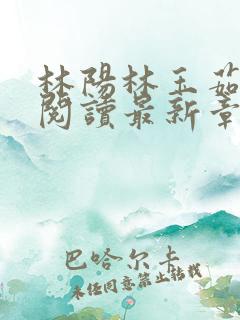 林陽林玉茹
閱讀最新章
巴哈尔卡
未经同意禁止转载